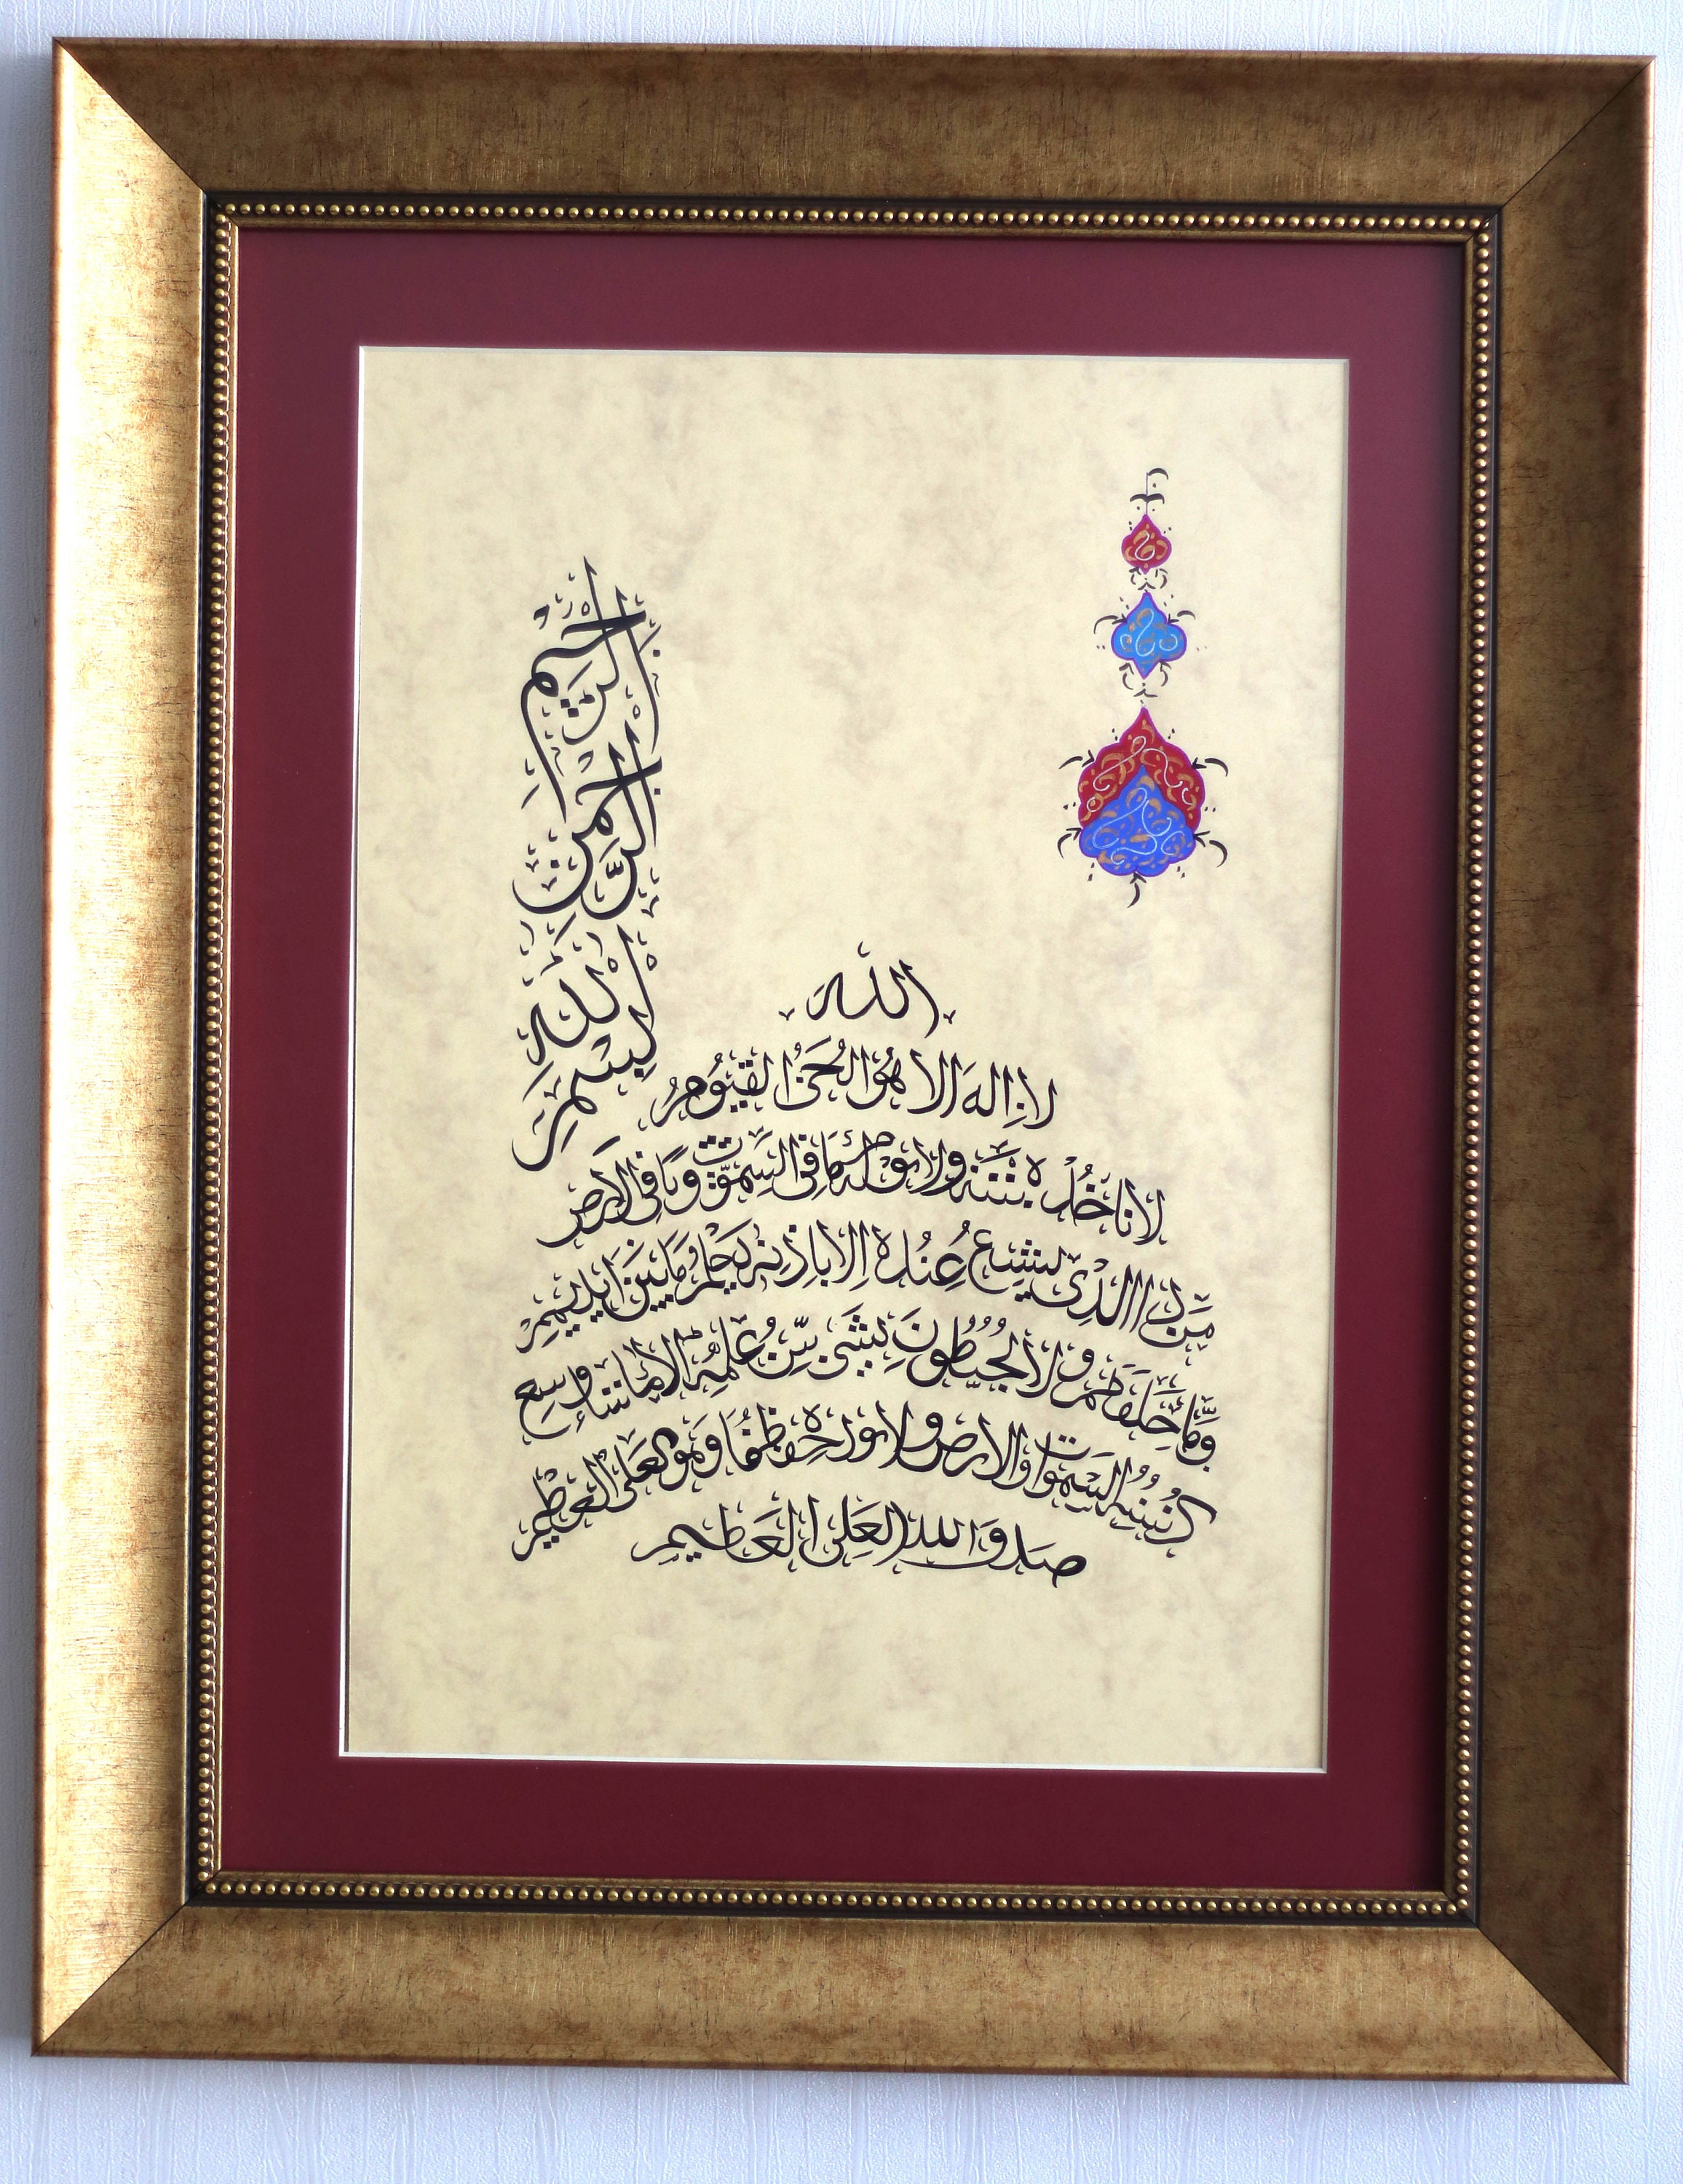 بسم الله الرحمن الرحيم
الله
لا اله الا هو الحي القيوم
لا تاخذه سنة ولا نوم له ما في السموت وما في الارض
من ذا الذي يشفع عنده الا باذنه يعلم ما بين ايديهم
وما خلفهم ولا يحيطون بشيء من علمه الا بما شاء وسع
كرسيه السموات والارض ولا يؤده حفظهما وهو العلي العظيم
صدق الله العلي العظيم